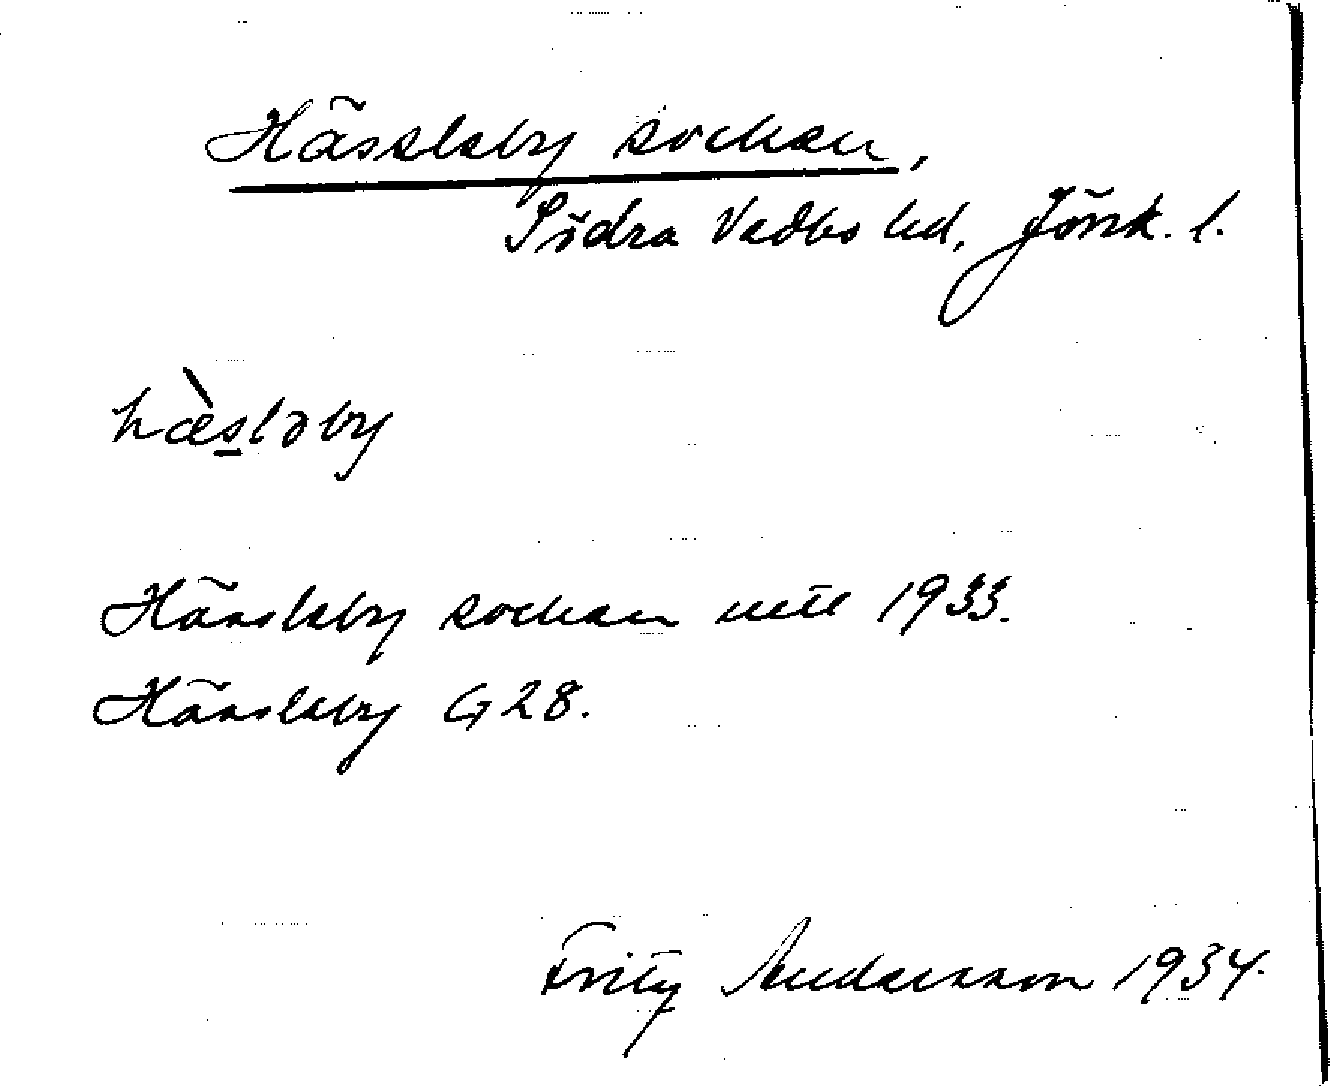 Hässleby socken,
Södra Vedbo hd, Jönk. l.
hæ̀sləby
Hässleby socken mtl 1933.
Hässleby G 28.
Fritz Andersson 1934.